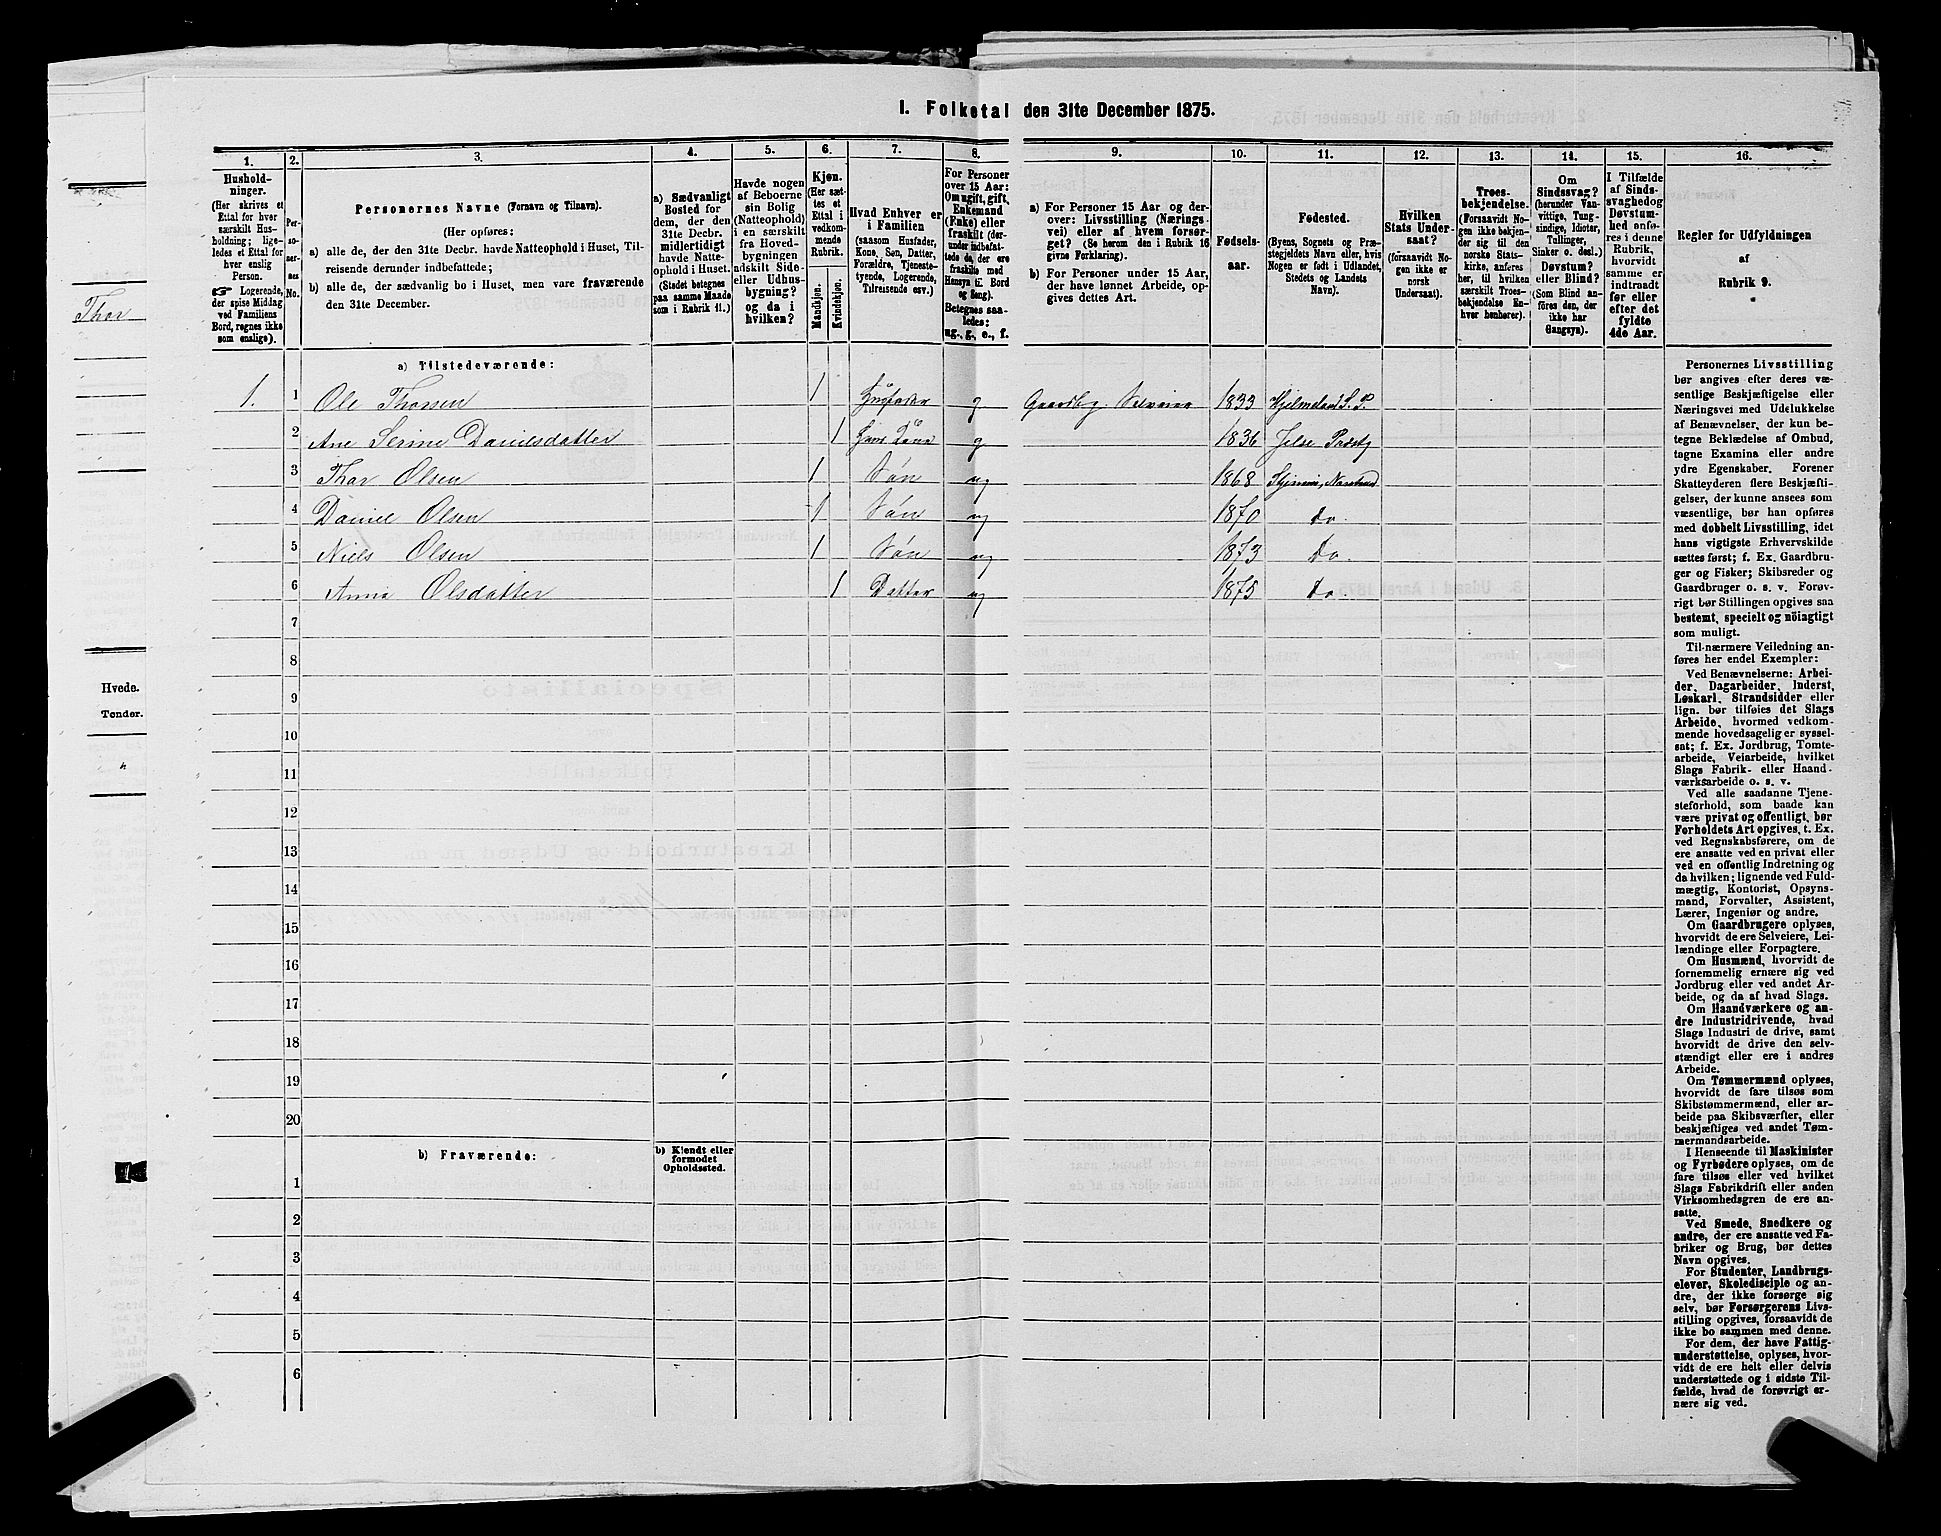 I. Folketal den 31te December 1875.
1.
Hushold-
ninger.
(Her skrives et
Ettal for hver
særskilt Hus-
holdning; lige-
ledes et Ettal for
hver enslig
Person.
☞ Logerende,
der spise Middag
ved Familiens
Bord, regnes ikke
som enslige).
2.
Per-
so-
ner-
nes
No.
3.
Personernes Navne (Fornavn og Tilnavn).
(Her opføres:
a) alle de, der den 31te Decbr. havde Natteophold i Huset, Til-
reisende derunder indbefattede;
b) alle de, der sædvanlig bo i Huset, men vare fraværende
den 31te December.
4.
a) Sædvanligt
Bosted for
dem, der den
31te Decbr.
midlertidigt
havde Natte-
ophold i Huset.
(Stedet betegnes
paa samme Maade
som i Rubrik 11.)
5.
Havde nogen
af Beboerne
sin Bolig
(Natteophold)
i en særskilt
fra Hoved-
bygningen
adskilt Side-
eller Udhus-
bygning?
og da i
hvilken?
6.
Kjøn.
(Her sæt-
tes et
Ettal i
vedkom-
mende
Rubrik.
Mandkjøn.
Kvindekjøn.
7.
Hvad Enhver er
i Familien
(saasom Husfader,
Kone, Søn, Datter,
Forældre, Tjeneste-
tyende, Logerende,
Tilreisende osv.)
8.
For Personer
over 15 Aar:
Om ugift, gift,
Enkemand
(Enke) eller
fraskilt (der-
under indbefat-
tede de, der ere
fraskilte med
Hensyn til Bord
og Seng).
Betegnes saa-
ledes:
ug., g., e., f.
9.
a) For Personer 15 Aar og der-
over: Livsstilling (Nærings-
vei) eller af hvem forsør-
get? (Se herom den i Rubrik 16
givne Forklaring).
b) For Personer under 15 Aar,
der have lønnet Arbeide, op-
gives dettes Art.
10.
Fødsels-
aar.
11.
Fødested.
(Byens, Sognets og Præ-
stegjeldets Navn eller, hvis
Nogen er født i Udlandet,
Stedets og Landets
Navn).
12.
Hvilken
Stats Under-
saat?
(forsaavidt No-
gen ikke er
norsk
Undersaat).
13.
Troes-
bekjendelse.
(Forsaavidt No-
gen ikke bekjen-
der sig til den
norske Stats-
kirke, anføres
her, til hvilken
særskilt Troes-
bekjendelse En-
hver henhører).
14.
Om
Sindssvag?
(herunder Van-
vittige, Tung-
sindige, Idioter,
Tullinger,
Sinker o. desl.)
Døvstum?
eller Blind?
(Som Blind an-
føres den, der
ikke har
Gangsyn).
15.
I Tilfælde
af Sinds-
svaghed og
Døvstum-
hed anfø-
res i denne
Rubrik,
hvorvidt
samme er
indtraadt
før eller
efter det
fyldte
4de Aar.
16.
Regler for Udfyldningen
af
Rubrik 9.
a) Tilstedeværende:
1. 1 Ole Thorsen 1 Husfader g Gaardbg. Selveier 1833 Hjelmeland S. P.
2 Ane Serine Danielsdatter 1 g 1836 Jelse Præstg
3 Thor Olsen 1 Søn ug 1868
4 Daniel Olsen 1 Søn ug 1870 Do.
5 Niels Olsen 1 Søn ug 1873 Do.
6 Anna Olsdatter 1 Datter ug 1875 Do.
7
8
9
10
11
12
13
14
15
16
17
18
19
20
b) Fraværende:
b) Kjendt eller
formodet
Opholdssted.
1
2
3
4
5
6
Personernes Livsstilling
bør angives efter deres væ-
sentlige Beskjæftigelse eller
Næringsvei med Udelukkelse
af Benævnelser, der kun be-
tegne Beklædelse af Ombud,
tagne Examina eller andre
ydre Egenskaber. Forener
Skatteyderen flere Beskjæfti-
gelser, der kunne ansees som
væsentlige, bør han opføres
med dobbelt Livsstilling, idet
hans vigtigste Erhvervskilde
sættes først; f. Ex. Gaardbru-
ger og Fisker; Skibsreder og
Gaardbruger o. s. v. Forøv-
rigt bør Stillingen opgives saa
bestemt, specielt og nöiagtigt
som muligt.
Til nærmere Veiledning an-
føres her endel Exempler:
Ved Benævnelserne: Arbei-
der, Dagarbeider, Inderst,
Løskarl, Strandsidder eller
lign. bør tilføies det Slags
Arbeide, hvormed vedkom-
mende hovedsagelig er syssel-
sat; f. Ex. Jordbrug, Tomte-
arbeide, Veiarbeide, hvilket
Slags Fabrik- eller Haand-
værksarbeide o. s. v.
Ved alle saadanne Tjene-
steforhold, som baade kan
være privat og offentligt, bør
Forholdets Art opgives, t. Ex.
ved Regnskabsførere, om de
ere ansatte ved en privat eller
ved en offentlig Indretning og
da hvilken; lignende ved Fuld-
mægtig, Kontorist, Opsyns-
mand, Forvalter, Assistent,
Lærer, Ingeniør og andre.
Om Gaardbrugere oplyses,
hvorvidt de ere Selveiere, Lei-
lændinge eller Forpagtere.
Om Husmænd, hvorvidt de
fornemmelig ernære sig ved
Jordbrug eller ved andet Ar-
beide, og da af hvad Slags.
Om Haandværkere og an-
dre Industridrivende, hvad
Slags Industri de drive, samt
hvorvidt de drive den selv-
stændigt eller ere i andres
Arbeide.
Om Tømmermænd oplyses,
hvorvidt de fare tilsøs som
Skibstømmermænd, eller ar-
beide paa Skibsværfter, eller
beskjæftiges ved andet Tøm-
mermandsarbeide.
I Henseende til Maskinister
og Fyrbødere oplyses, om de
fare tilsøs eller ved hvilket
Slags Fabrikdrift eller anden
Virksomhedsgren de ere an-
satte.
Ved Smede, Snedkere og
andre, der ere ansatte ved Fa-
briker og Brug, bør dettes
Navn opgives.
For Studenter, Landbrugs-
elever, Skoledisciple og an-
dre, der ikke forsørge sig
selv, bør Forsørgerens Livs-
stilling opgives, forsaavidt de
ikke bo sammen med denne.
For dem, der have Fattig-
understøttelse, oplyses, hvor-
vidt de ere helt eller delvis
understøttede og i sidste Til-
fælde, hvad de forøvrigt er-
nære sig ved.
Thor
Hvede.
Tønder.